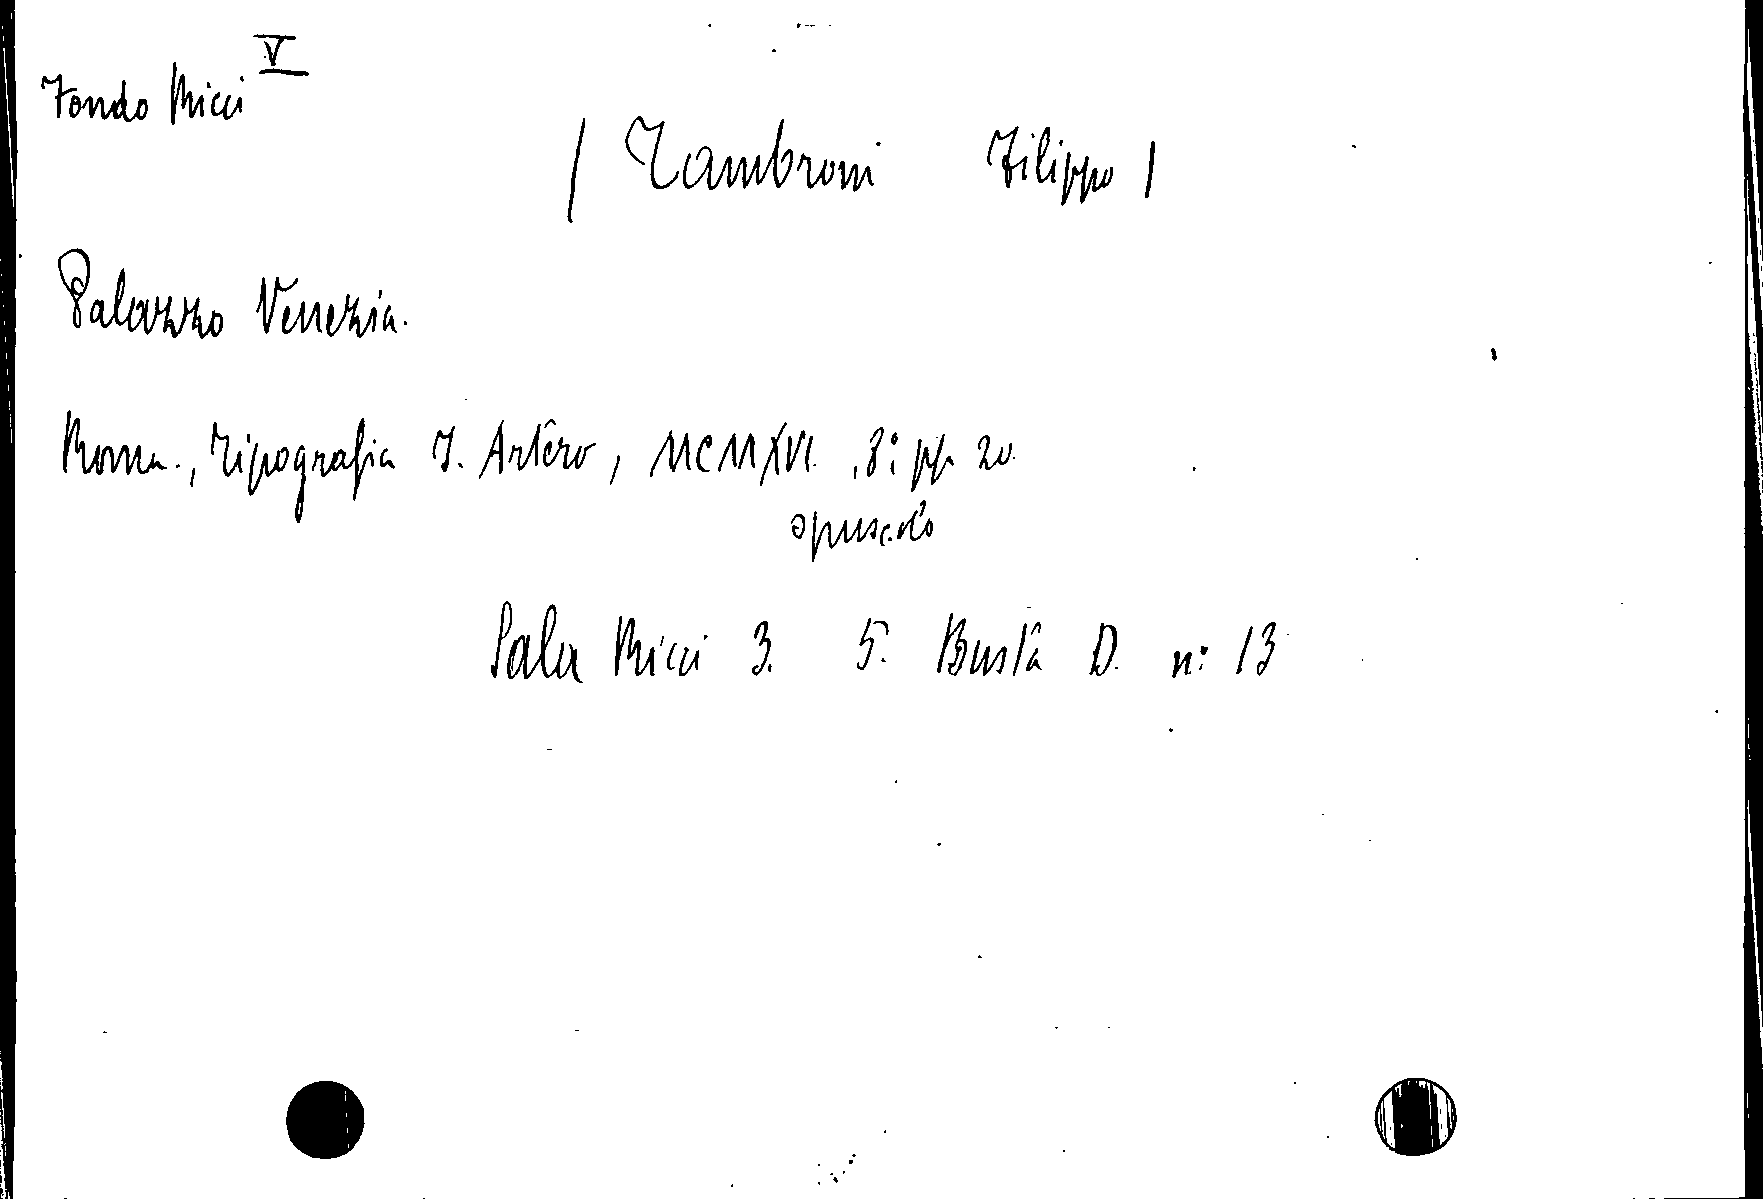 V
Fondo Ricci
/ Tambroni Filippo /
Palazzo Venezia.
Roma., Tipografia F. Artero, MCMXVI. 8º pp. 20.
opuscolo
Sala Ricci 3. 5. Busta D. nº 13